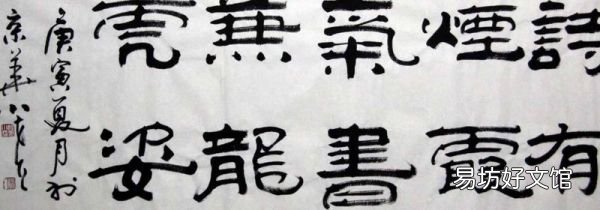 詩有
煙霞
氣書
兼龍
虎姿
庚寅夏月於
京華
易坊好文馆